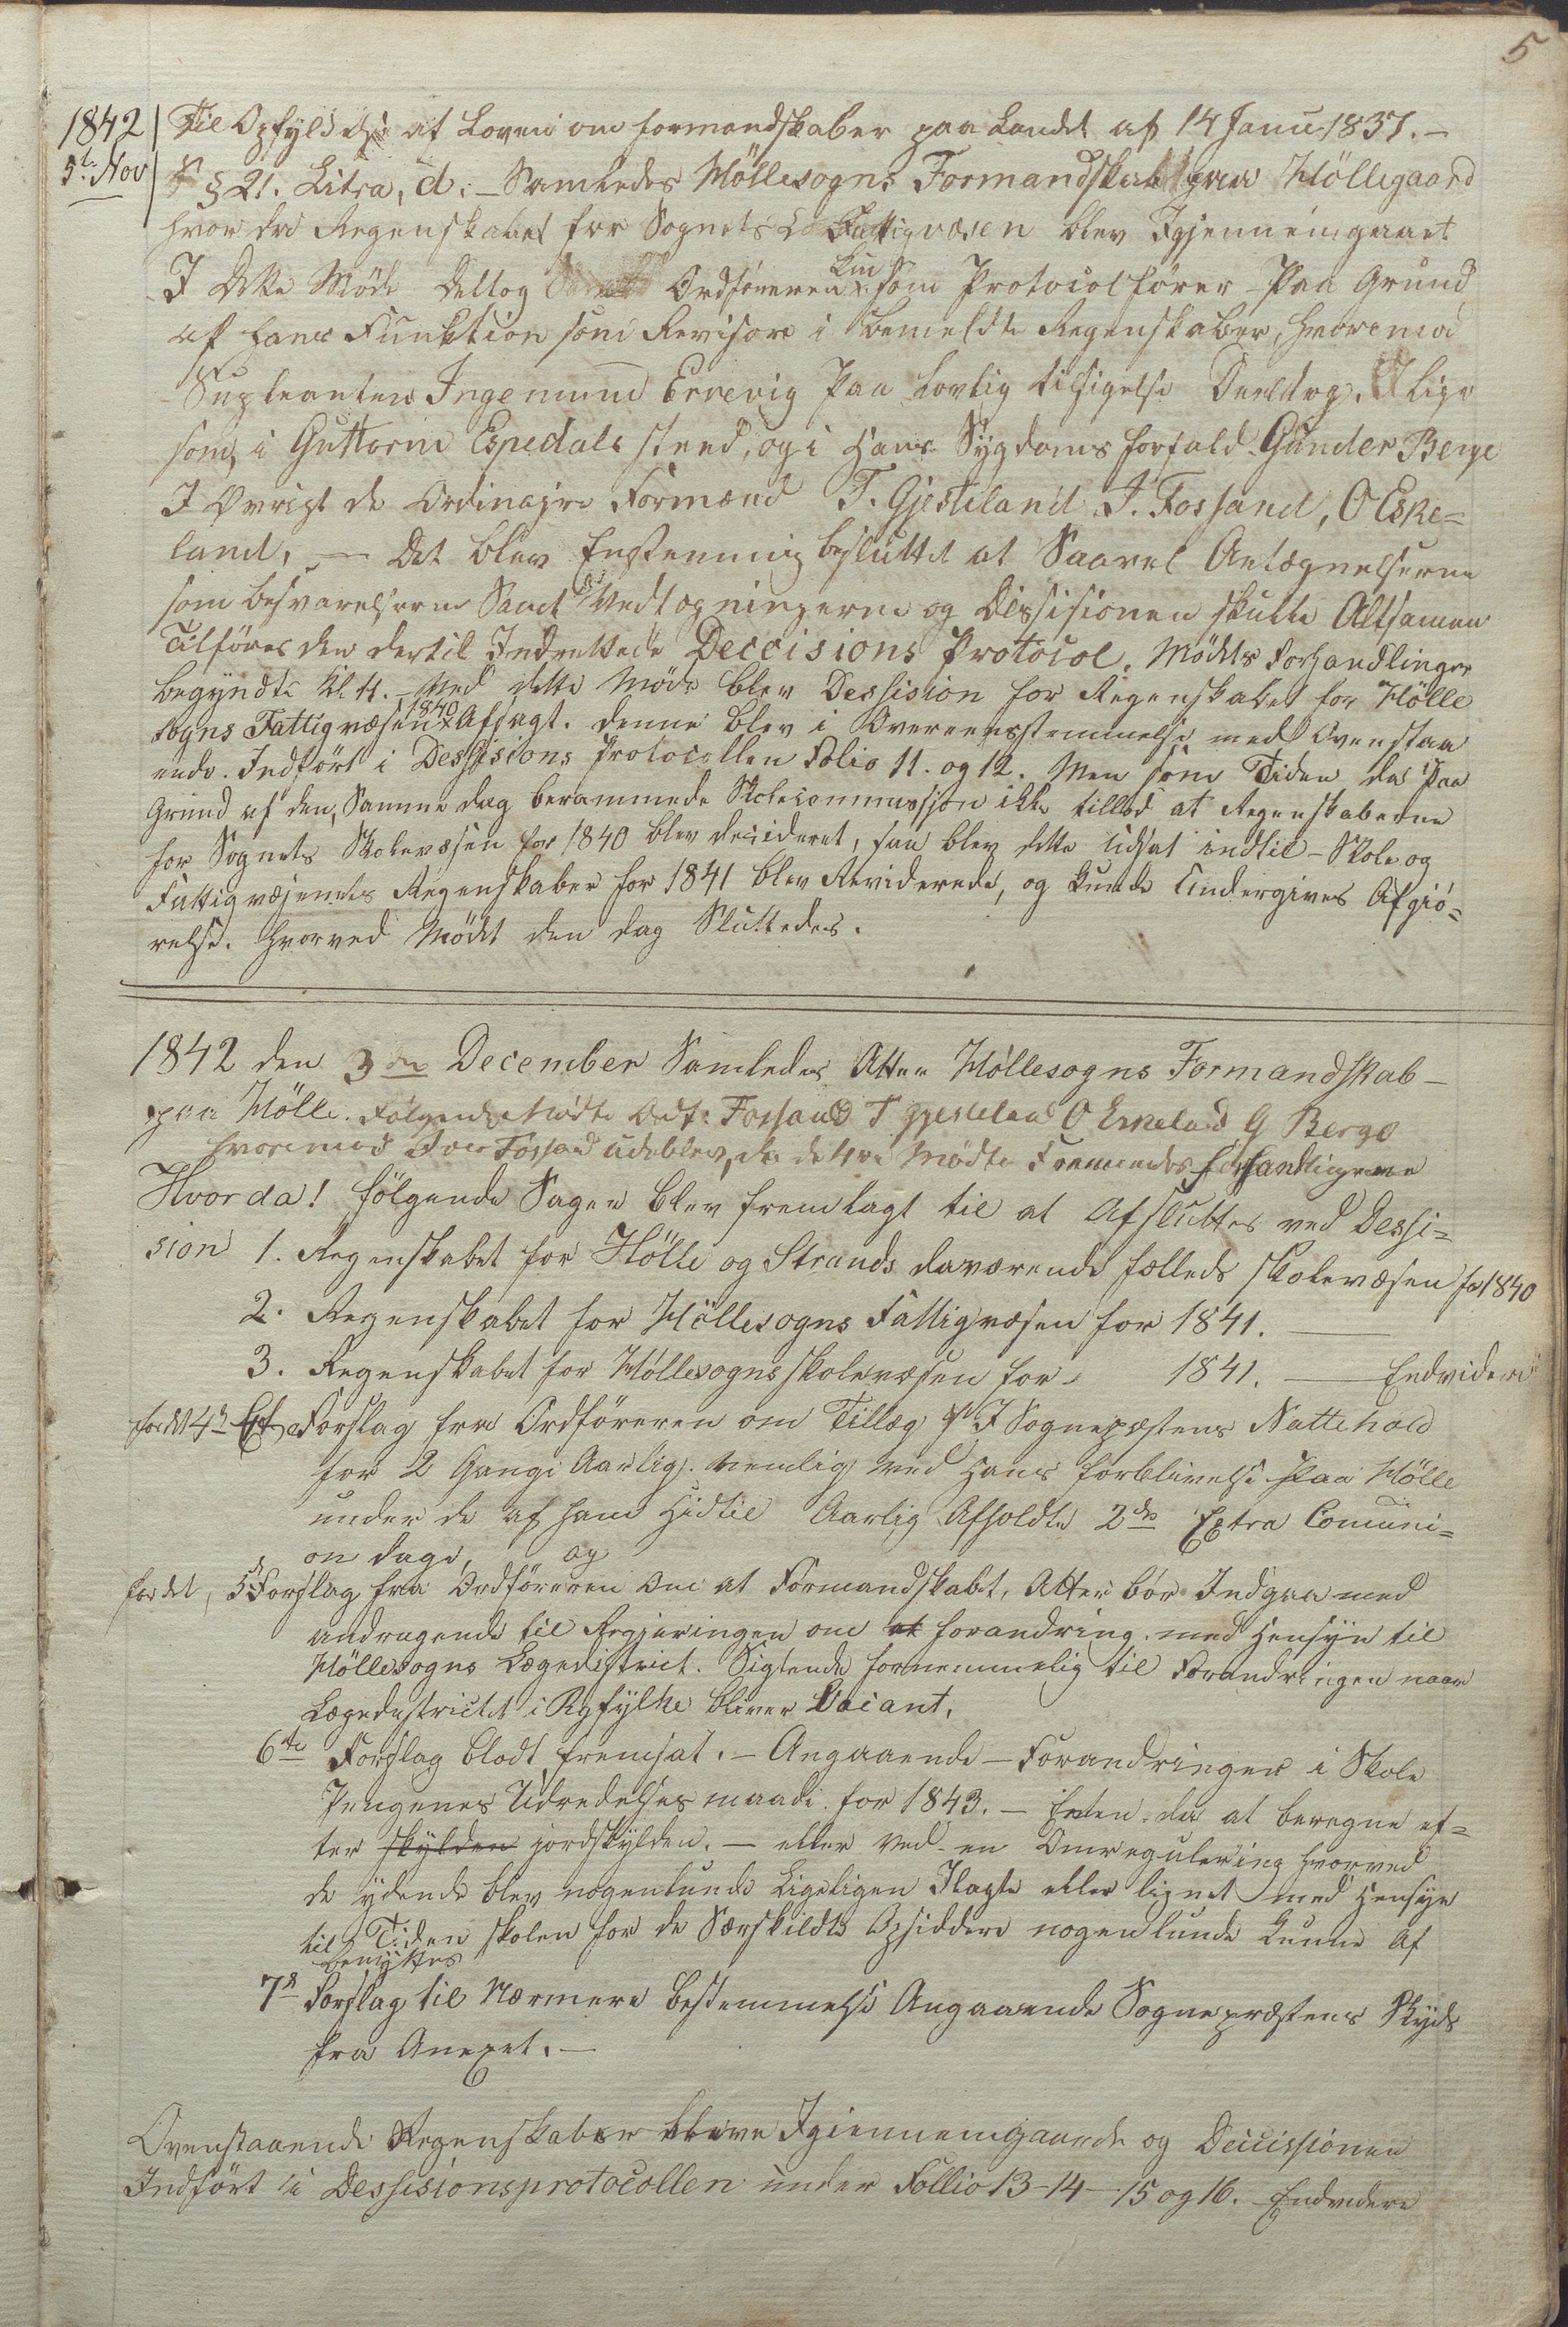 5
1842 Til Opfyldelse af Loven om Formandskaber paa Landet af 14 Janu 1837. –
5te Nov § 21. Litra, d. – Samledes Höllesogns Formandskab paa Höllegaard
hvor da Regenskabet for Sognets Fattigvæsen blev Igjennemgaaet
I Dette Möde Deltog Ordföreren kun som Protocolförer – Paa Grund
af hans Funktion som Revisor i bemeldte Regenskaber, hvoremod
Supleanten Ingemund Errevig paa lovlig tilsigelse Deeltog. Lige
som, i Guttorm Espedals sted, og i Hans Sygdoms forfald Gunder Berge
I Øvrigt de Ordinaire Formænd T. Gjesteland, I. Fossand, O Eske=
land, – Det blev Enstemmig besluttet at Saavel Antegnelserne
som besvarelserne Samt Vedtegningerne og Dessisionen skulle Altsamen
Tilföres den dertil Indrettede Deccisions Protocol. Mödets Forhandlinger
begyndte Kl. 11. – Ved dette Möde blev Dessision for Regenskabet for Hölle
sogns Fattigvæsen 1840 Afsagt. denne blev i Overeensstemmelse med Ovenstaa
ende. Indfört i Dessisions Protocollen Folio 11. og 12. Men som Tiden da Paa
Grund af den, Samme dag berammede Skolecommission ikke tillod at Regenskaberne
for Sognets Skolevæsen for 1840 blev decideret, saa blev dette Udsat indtil – Skole og
Fattigvæsenets Regenskaber for 1841 blev Reviderede, og kunde Undergives Afgiö=
relse. Hvorved Mödet den dag Sluttedes.
1842 den 3die December Samledes Atter Höllesogns Formandskab –
paa Hölle. Fölgende Mödte Ordf: Fossand T Gjesteland O Eskeland G Berge
hvoremod Iver Fossand udeblev, da de 4re Mödte Fremmedes Forhandlingerne
Hvor da! fölgende Sager blev fremlagt til at Afsluttes ved Dessi=
sion 1. Regenskabet for Hölle og Strands daværende fælleds skolevæsen for 1840
2. Regenskabet for Höllesogns Fattigvæsen for 1841. –
3. Regenskabet for Höllesogns skolevæsen for – 1841. – Endvidere
for det 4de Et Forslag fra Ordföreren om Tillæg I Sognepræstens Nattehold
for 2 Gange Aarlig. nemlig ved Hans Forblivelse Paa Hölle
under de af ham Hidtil Aarlig Afholdte 2de Extra Comuni=
on dage, og
for det, 5te Forslag fra Ordföreren Om at Formandskabet, Atter bör Indgaa med
andragende til Regjeringen om at forandring. med Hensyn til
Höllesogns Lægedistrict. Sigtende fornemmelig til Forandringen naar
Lægedistrictet i Ryfylke bliver Vacant.
6te Forslag blodt fremsat. – Angaaende – Forandringer i Skole
Pengenes Udredelses maade for 1843. – Enten da at beregne ef=
ter skylden jordskylden. – eller ved en Omregulering hvorved
de ydende blev nogenlunde Ligeligen Ilagte eller lignet med Hensyn
til Tiden skolen for de Særskildte Opsiddere nogenlunde kunne Af
benyttes
7de Forslag til Nærmere bestemmelse Angaaende Sognepræstens Skyds
fra Anexet. –
Ovenstaaende Regenskaber bleve Igiennemgaaede og Deccisionen
Indfört i Dessisionsprotocollen under Follio 13–14–15 og 16. Endvidere